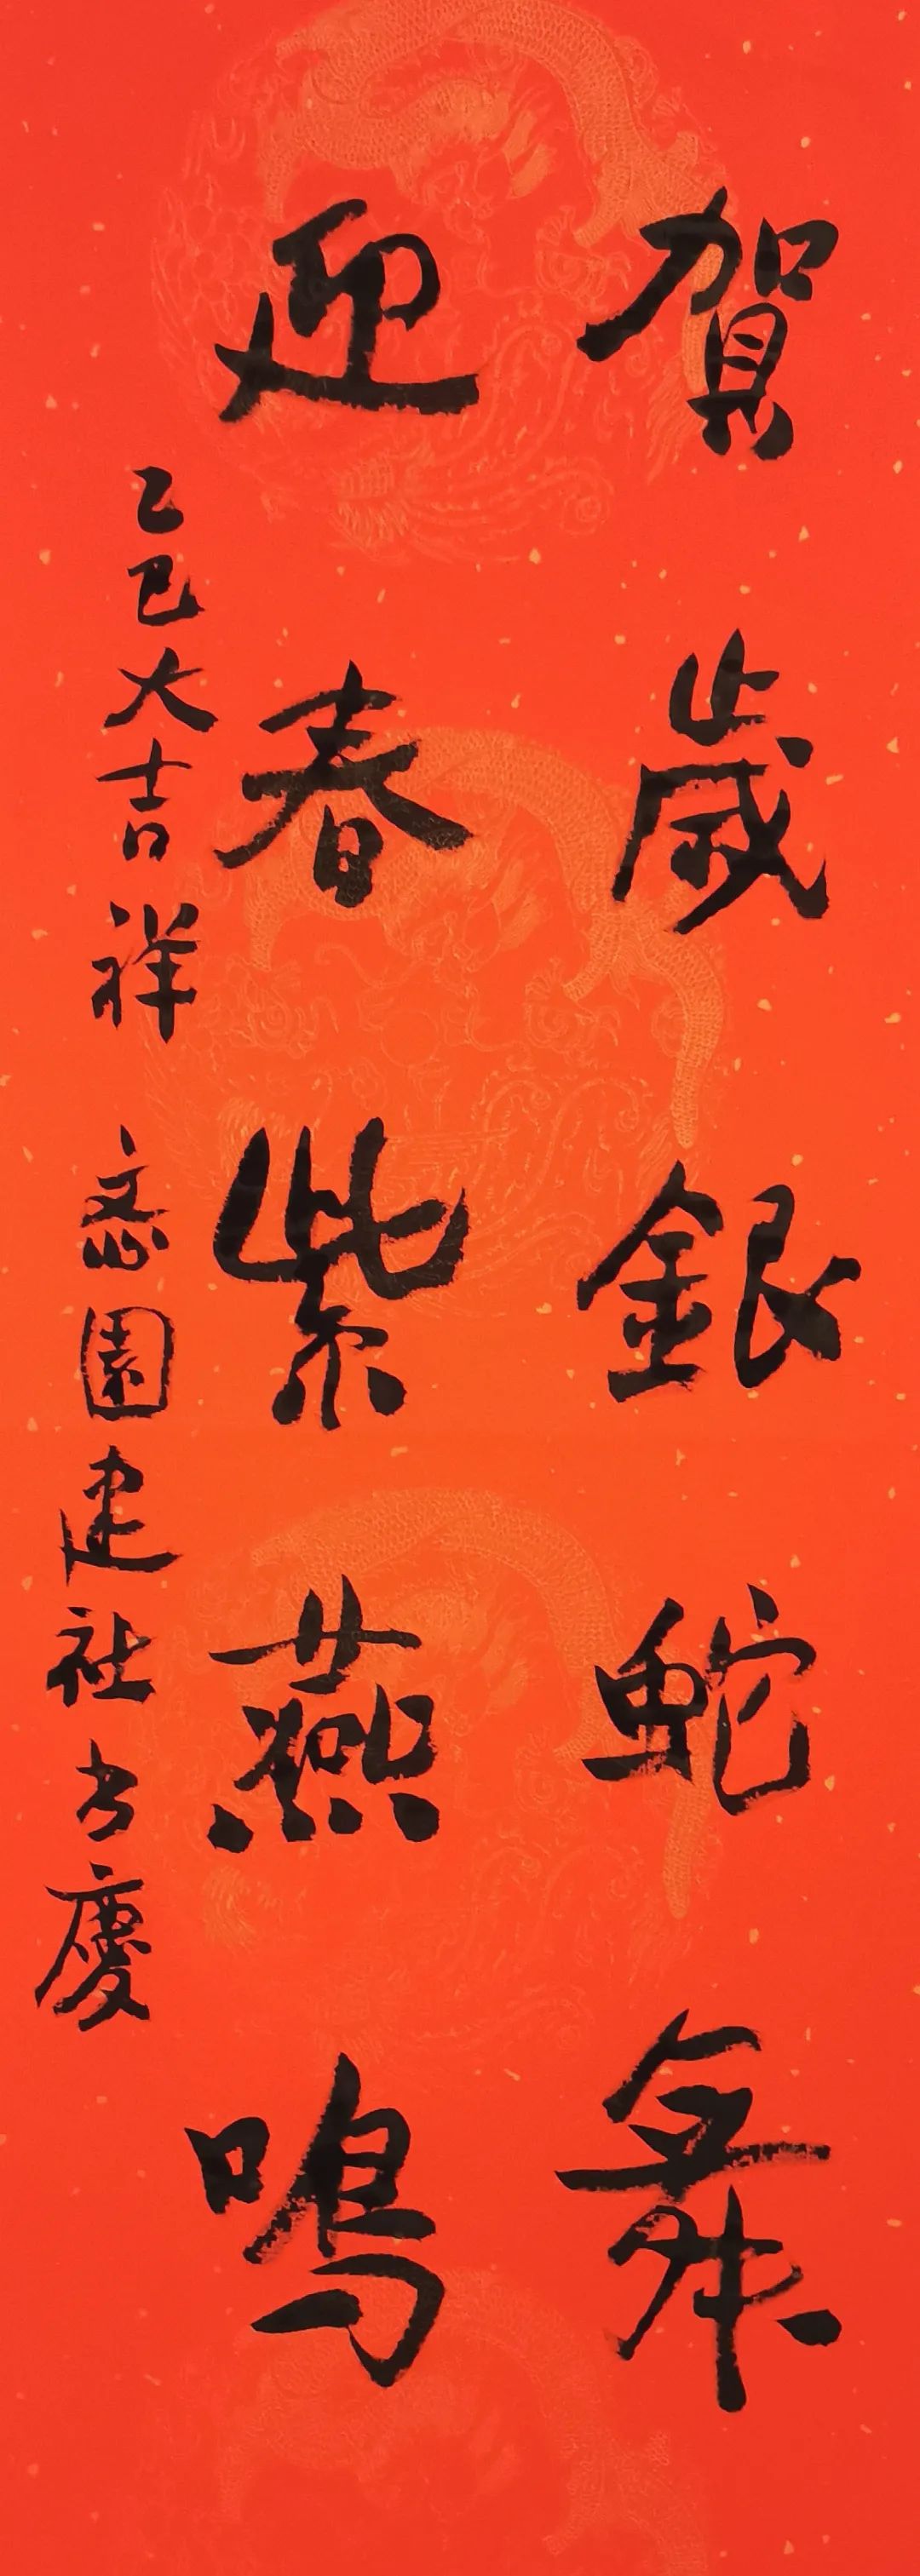 賀歲銀蛇舞
迎春紫燕鳴
乙巳大吉祥
忞園建社书慶